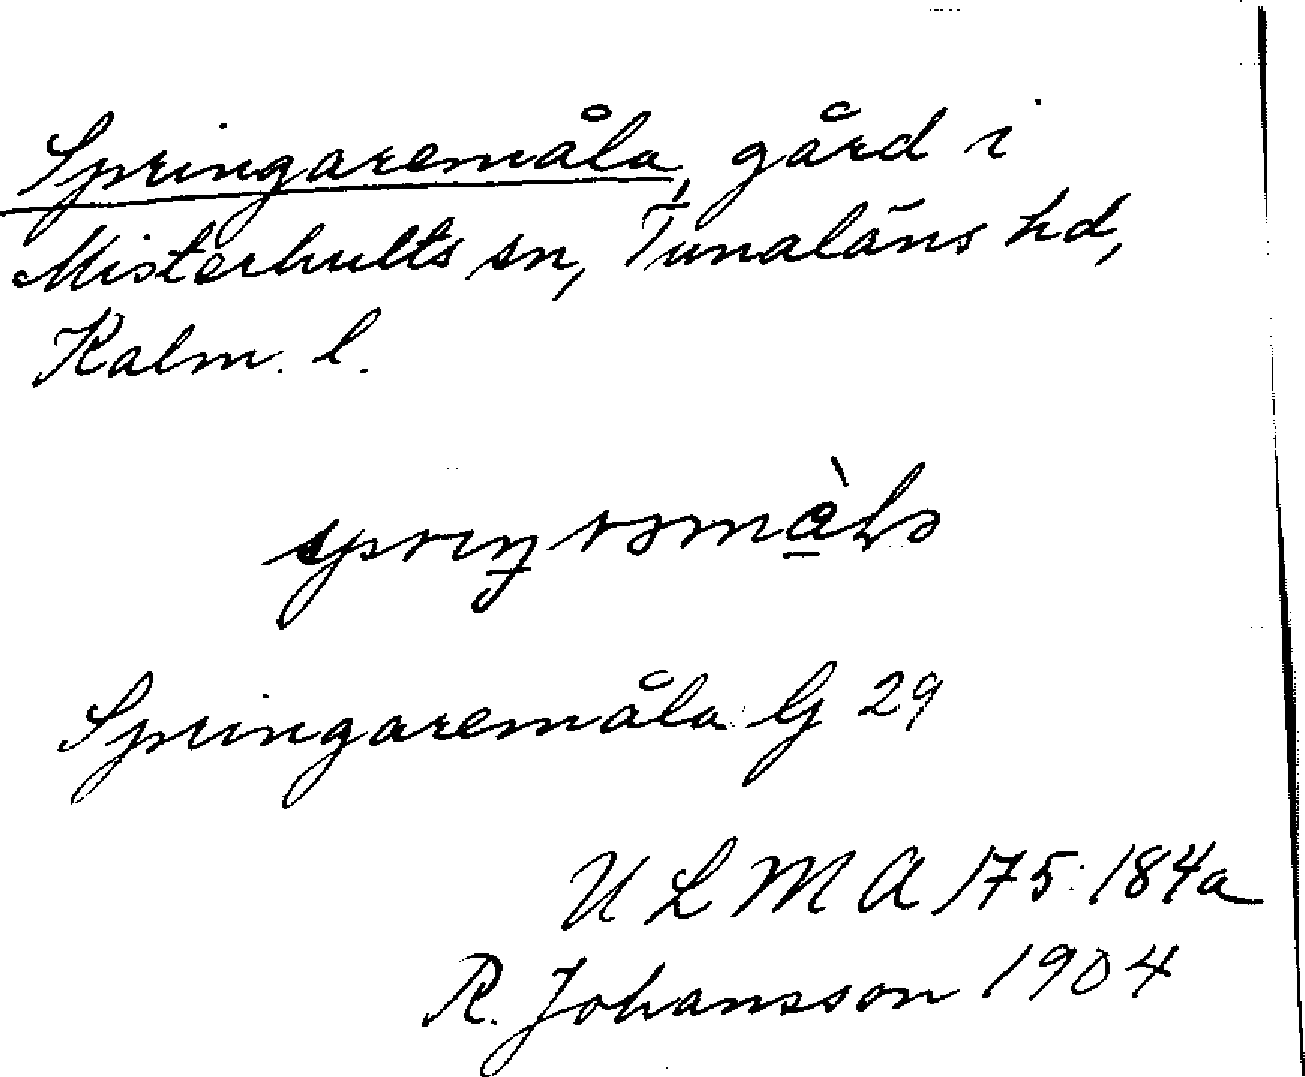 Springaremåla, gård i
Misterhults sn, Tunaläns hd,
Kalm. l.
Springaremåla G 29
U L M A 175:184a
R. Johansson 1904